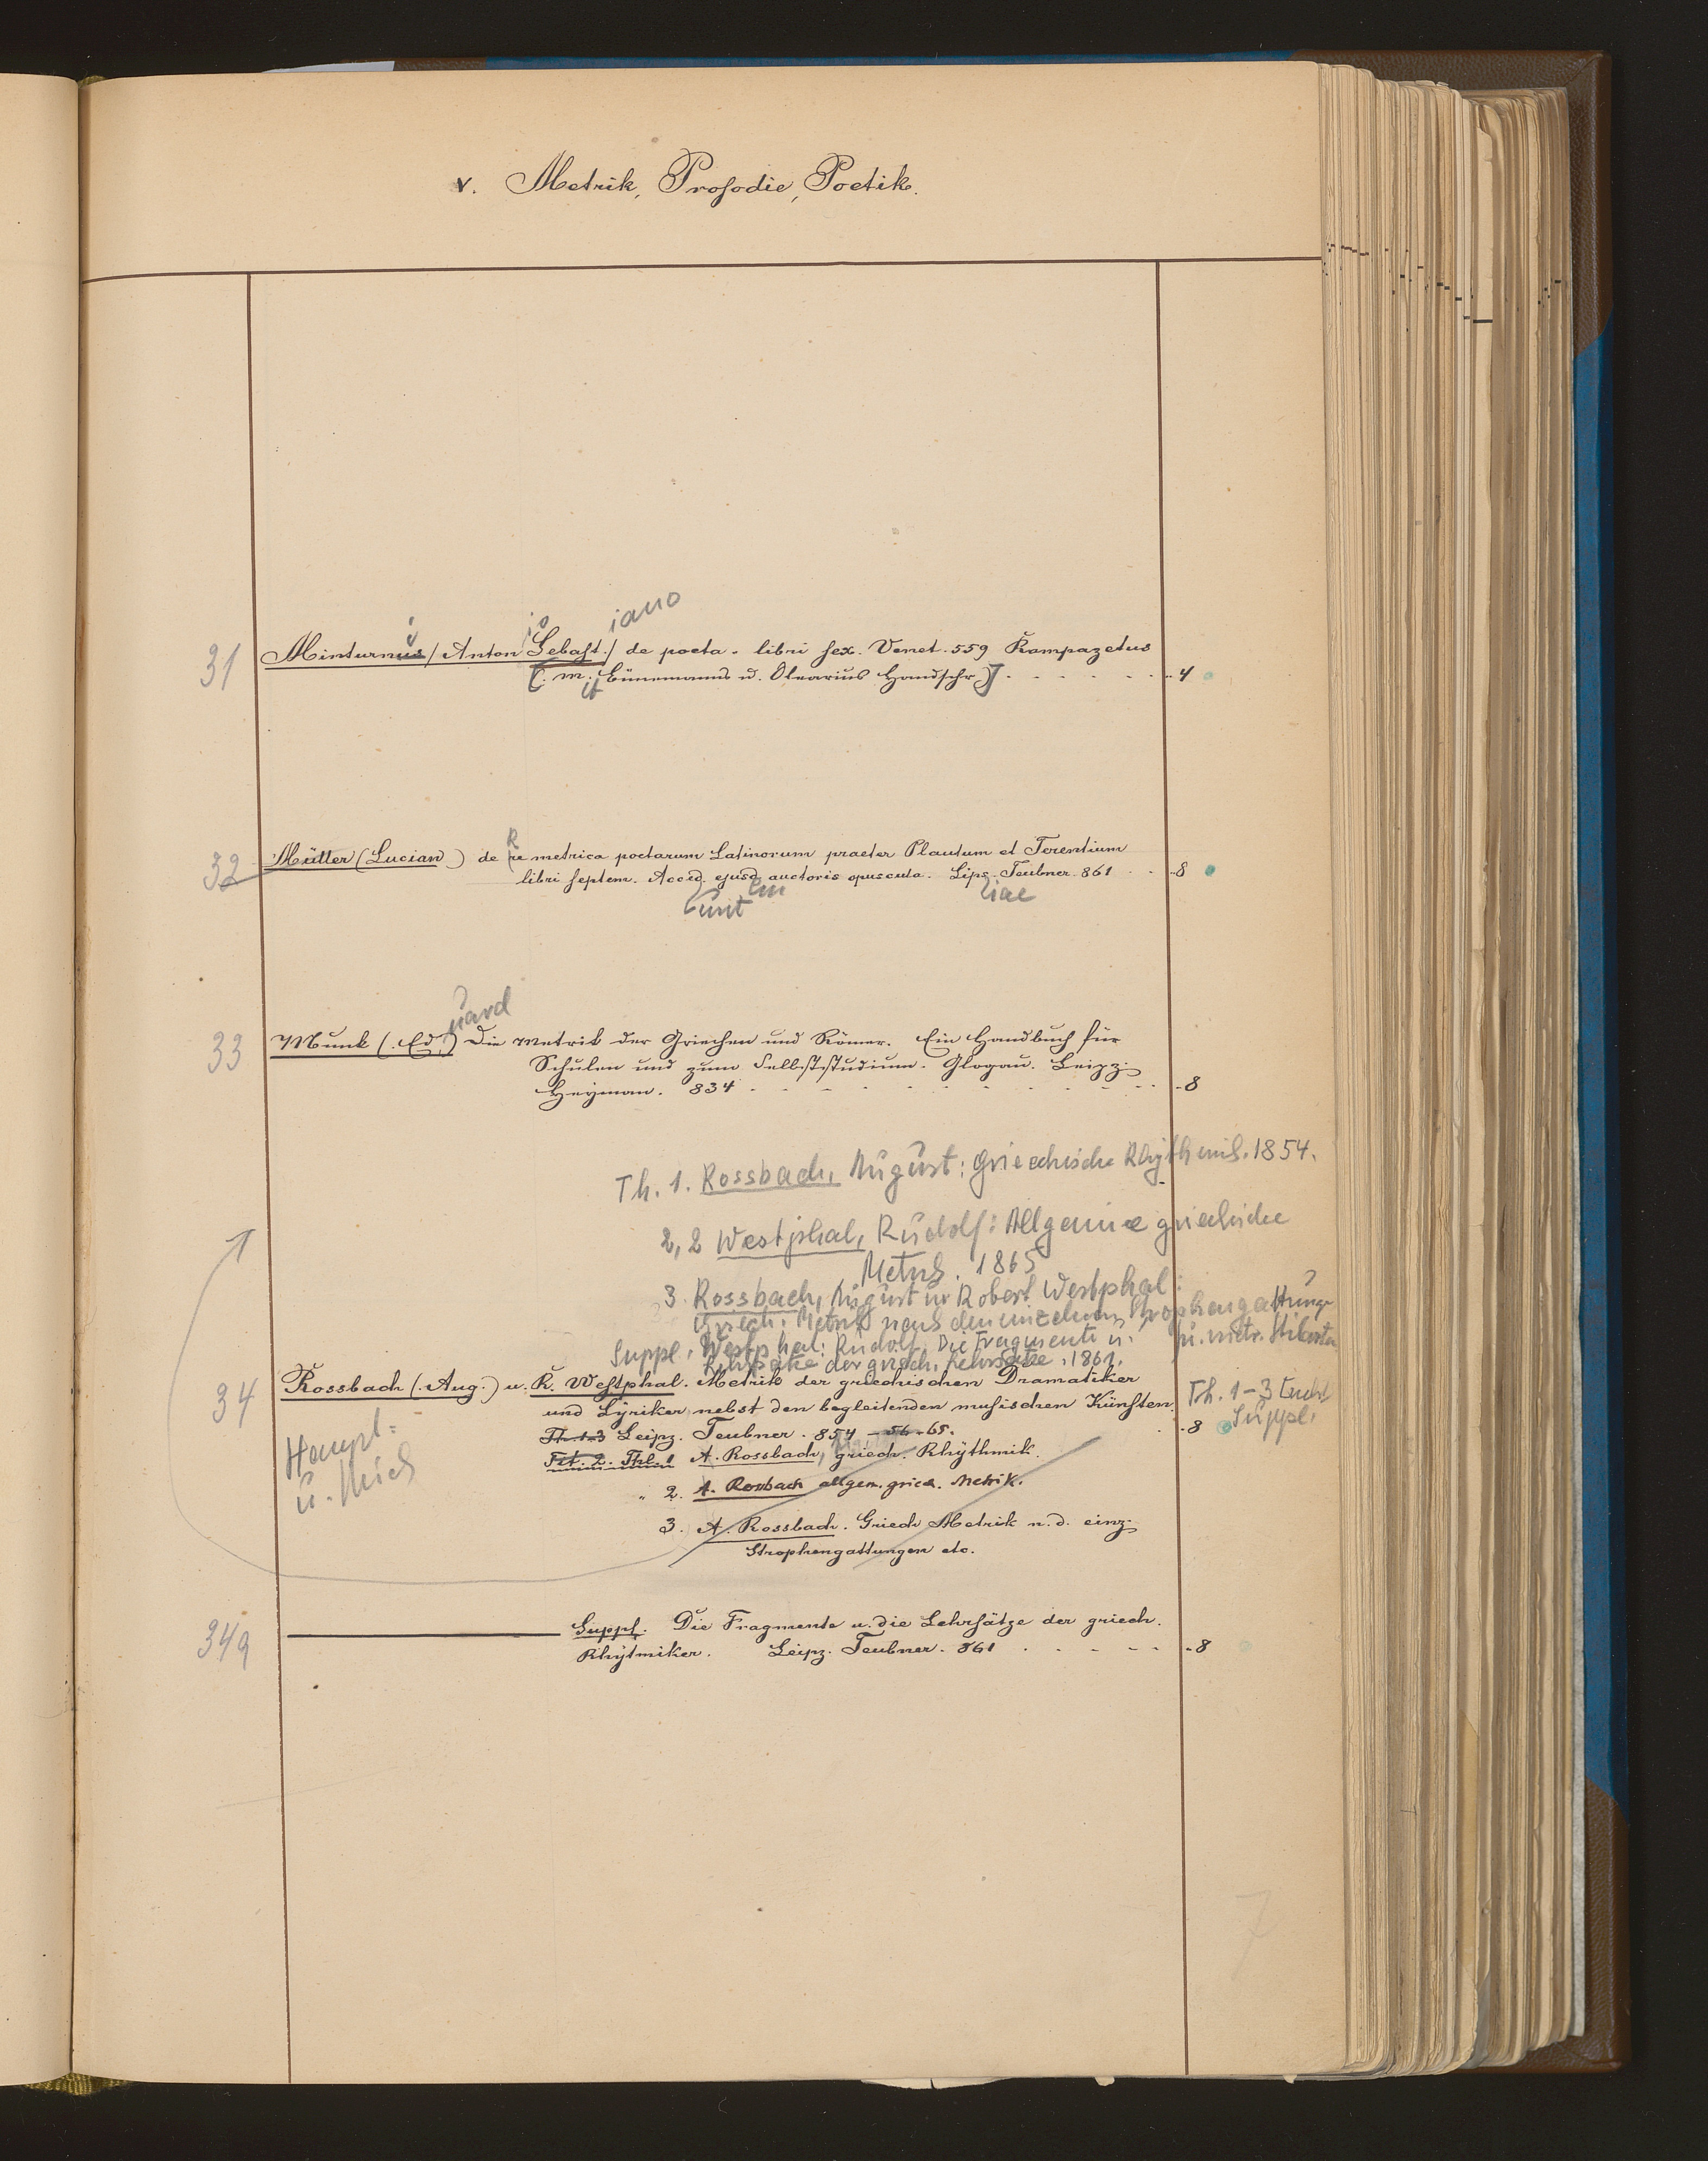 v. Metrik, Prosodie, Poetik.
i io iano
31 Minturnus (Anton Sebast.) de poeta. libri sex. Venet. 559 Rampazetus
[(. m. Bünemanns u. Olearius Handschr.)] 4
it
R
32 Müller (Lucian) de re metrica poetarum Latinorum praeter Plautum et Terentium
libri septem. Acced. ejusd. auctoris opuscula. Lips. Teubner. 861 8
unt em iae
uard
33 Munk (.Ed.) Die Metrik der Griechen und Römer. Ein Handbuch für
Schulen und zum Selbststudium. Glogau. Leipz.
Heyman. 834 8
Th. 1. Rossbach, August: Griechische Rhythmik. 1854.
2,2 Westphal, Rudolf: Allgemeine griechische
Metrik. 1865
3. Rossbach, August u. Robert Westphal:
Griech. Metrik nach den einzelnen Strophengattungen
u. metr.
Suppl. Westphal: Rudolf. Die Fragmente u.
Lehrsätze der griech. 1861.
34 Rossbach (.Aug.) u. R. Westphal. Metrik der griechischen Dramatiker
und Lyriker nebst den begleitenden musischen Künsten.
Th. 1-3 Leipz. Teubner. 854 - 56 - 65. 8
Th. 1-3
Suppl.
Haupt=
u.
Tit. 2. Thl. 1 A. Rossbach, griech. Rhythmik.
" 2. A. Rossbach allgem. griech. Metrik.
3. A. Rossbach. Griech Metrik n. d. einz.
Strophengattungen etc.
34a Suppl. Die Fragmente u. die Lehrsätze der griech.
Rhytmiker. Leipz. Teubner. 861 8
7